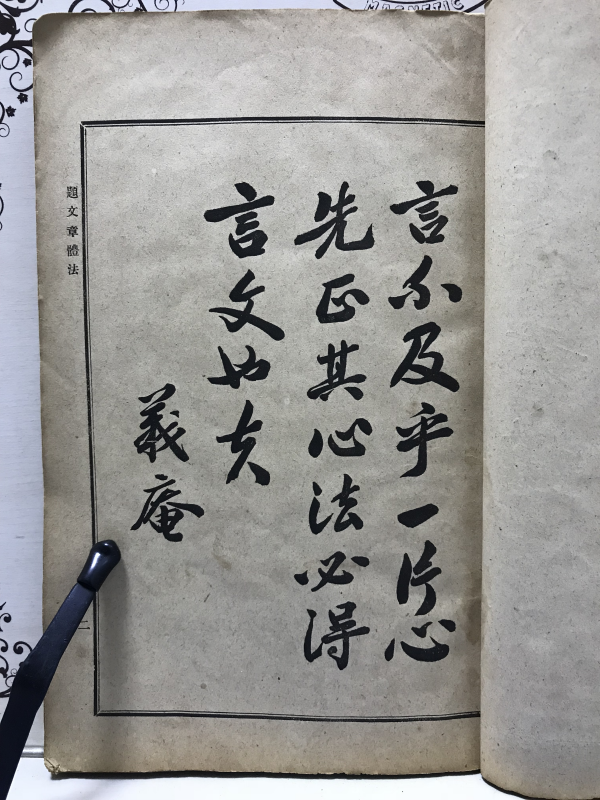 MAGNETIC
言不及乎一片心
先正其心法必得
言文也矣
義庵
題文章體法
二